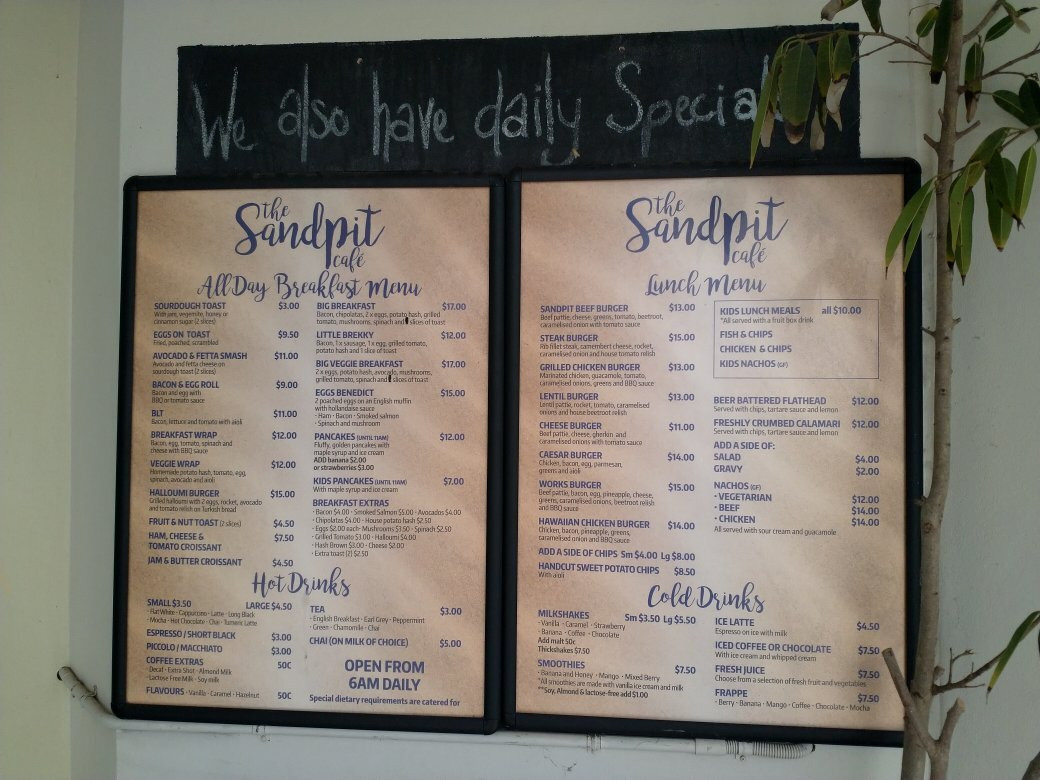 We also have daily Specia
the
Sandpit
café
All Day Breakfast Menu
SOURDOUGH TOAST $3.00
With jam, vegemite, honey or
cinnamon sugar (2 slices)
EGGS ON TOAST $9.50
Fried, poached, scrambled
AVOCADO & FETTA SMASH $11.00
Avocado and fetta cheese on
sourdough toast (2 slices)
BACON & EGG ROLL $9.00
Bacon and egg with
BBQ or tomato sauce
BLT $11.00
Bacon, lettuce and tomato with aioli
BREAKFAST WRAP $12.00
Bacon, egg, tomato, spinach and
cheese with BBQ sauce
VEGGIE WRAP $12.00
Homemade potato hash, tomato, egg,
spinach, avocado and aioli
HALLOUMI BURGER $15.00
Grilled halloumi with 2 eggs, rocket, avocado
and tomato relish on Turkish bread
FRUIT & NUT TOAST (2 slices) $4.50
HAM, CHEESE & $7.50
TOMATO CROISSANT
JAM & BUTTER CROISSANT $4.50
BIG BREAKFAST $17.00
Bacon, chipolatas, 2 x eggs, potato hash, grilled
tomato, mushrooms, spinach and slices of toast
LITTLE BREKKY $12.00
Bacon, 1 x sausage, 1 x egg, grilled tomato,
potato hash and 1 slice of toast
BIG VEGGIE BREAKFAST $17.00
2 x eggs, potato hash, avocado, mushrooms,
grilled tomato, spinach and slices of toast
EGGS BENEDICT $15.00
2 poached eggs on an English muffin
with hollandaise sauce
· Ham · Bacon · Smoked salmon
· Spinach and mushroom
PANCAKES (UNTIL 11AM) $12.00
Fluffy, golden pancakes with
maple syrup and ice cream
ADD banana $2.00
or strawberries $3.00
KIDS PANCAKES (UNTIL 11AM) $7.00
With maple syrup and ice cream
BREAKFAST EXTRAS
· Bacon $4.00 · Smoked Salmon $5.00 · Avocados $4.00
· Chipolatas $4.00 · House potato hash $2.50
· Eggs $2.00 each · Mushrooms $3.50 · Spinach $2.50
· Grilled Tomato $3.00 · Halloumi $4.00
· Hash Brown $3.00 · Cheese $2.00
· Extra toast (2) $2.50
Hot Drinks
SMALL $3.50 LARGE $4.50
· Flat White · Cappuccino · Latte · Long Black
· Mocha · Hot Chocolate · Chai · Tumeric Latte
ESPRESSO / SHORT BLACK $3.00
PICCOLO / MACCHIATO $3.00
COFFEE EXTRAS 50C
· Decaf · Extra Shot · Almond Milk
· Lactose Free Milk · Soy milk
FLAVOURS · Vanilla · Caramel · Hazelnut 50C
TEA $3.00
· English Breakfast · Earl Grey · Peppermint
· Green · Chamomile · Chai
CHAI (ON MILK OF CHOICE) $5.00
OPEN FROM
6AM DAILY
Special dietary requirements are catered for
the
Sandpit
café
Lunch Menu
SANDPIT BEEF BURGER $13.00
Beef pattie, cheese, greens, tomato, beetroot,
caramelised onion with tomato sauce
STEAK BURGER $15.00
Rib fillet steak, camembert cheese, rocket,
caramelised onion and house tomato relish
GRILLED CHICKEN BURGER $13.00
Marinated chicken, guacamole, tomato,
caramelised onions, greens and BBQ sauce
LENTIL BURGER $13.00
Lentil pattie, rocket, tomato, caramelised
onions and house beetroot relish
CHEESE BURGER $11.00
Beef pattie, cheese, gherkin and
caramelised onion with tomato sauce
CAESAR BURGER $14.00
Chicken, bacon, egg, parmesan,
greens and aioli
WORKS BURGER $15.00
Beef pattie, bacon, egg, pineapple, cheese,
greens, caramelised onions, beetroot relish
and BBQ sauce
HAWAIIAN CHICKEN BURGER $14.00
Chicken, bacon, pineapple, greens,
caramelised onion and BBQ sauce
ADD A SIDE OF CHIPS Sm $4.00 Lg $8.00
HANDCUT SWEET POTATO CHIPS $8.50
With aioli
KIDS LUNCH MEALS all $10.00
*All served with a fruit box drink
FISH & CHIPS
CHICKEN & CHIPS
KIDS NACHOS (GF)
BEER BATTERED FLATHEAD $12.00
Served with chips, tartare sauce and lemon
FRESHLY CRUMBED CALAMARI $12.00
Served with chips, tartare sauce and lemon
ADD A SIDE OF:
SALAD $4.00
GRAVY $2.00
NACHOS (GF)
· VEGETARIAN $12.00
· BEEF $14.00
· CHICKEN $14.00
All served with sour cream and guacamole
Cold Drinks
MILKSHAKES Sm $3.50 Lg $5.50
· Vanilla · Caramel · Strawberry
· Banana · Coffee · Chocolate
Add malt 50c
Thickshakes $7.50
SMOOTHIES $7.50
· Banana and Honey · Mango · Mixed Berry
*All smoothies are made with vanilla ice cream and milk
**Soy, Almond & lactose-free add $1.00
ICE LATTE $4.50
Espresso on ice with milk
ICED COFFEE OR CHOCOLATE $7.50
With ice cream and whipped cream
FRESH JUICE $7.50
Choose from a selection of fresh fruit and vegetables
FRAPPE $7.50
· Berry · Banana · Mango · Coffee · Chocolate · Mocha